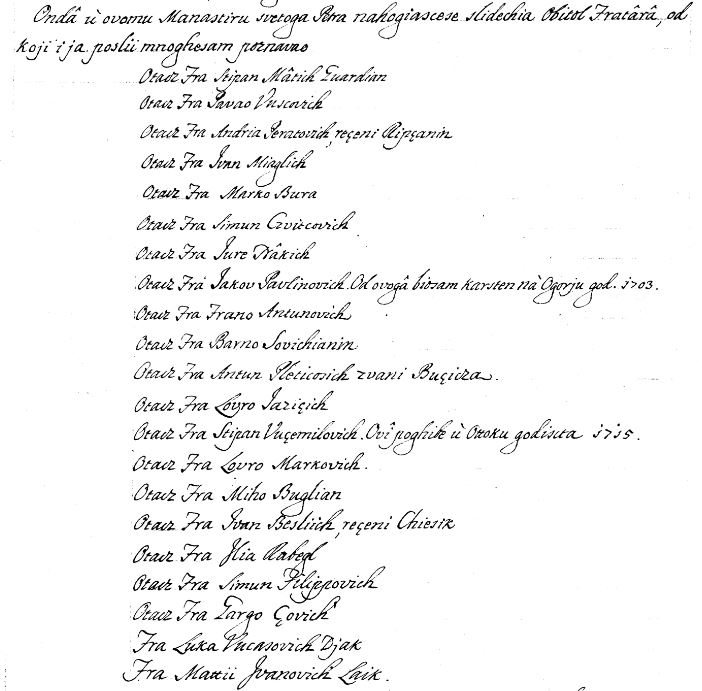 Ondâ ù ovomu Manastiru svetoga Petra nahogiascese slidechia Obitol Fratârâ, od
koji i ja poslii mnoghesam poznavao
Otacz Fra Stipan Mâtich Guardian
Otacz Fra Pavao Vuscovich
Otacz Fra Andria Peratovich, reçeni Ripçanin
Otacz Fra Ivan Miaglich
Otacz Fra Marko Bura
Otacz Fra Simun Czvitcovich
Otacz Fra Jure Nâkich
Otacz Fra Jakov Pavlinovich. Od ovogâ bitsam karsten nà Ogorju god. 1703.
Otacz Fra Frano Antunovich
Otacz Fra Barno Sovichianin
Otacz Fra Antun Pleticosich zvani Buçicza.
Otacz Fra Lovro Jaziçich
Otacz Fra Stipan Vuçemilovich. Ovî poghibe ù Otoku godiscta 1715.
Otacz Fra Lovro Markovich.
Otacz Fra Miho Buglian
Otacz Fra Ivan Besliich, reçeni Chiesik
Otacz Fra Ilia Rabegl
Otacz Fra Simun Filippovich
Otacz Fra Gargo Çovich
Fra Luka Vucasovich Djak
Fra Mattii Ivanovich Laik.